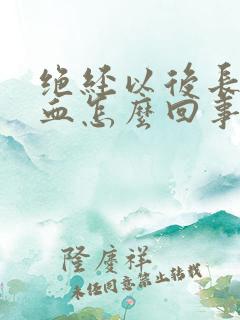 绝经以後長
血怎麼回事
隆慶祥
未经同意禁止转载